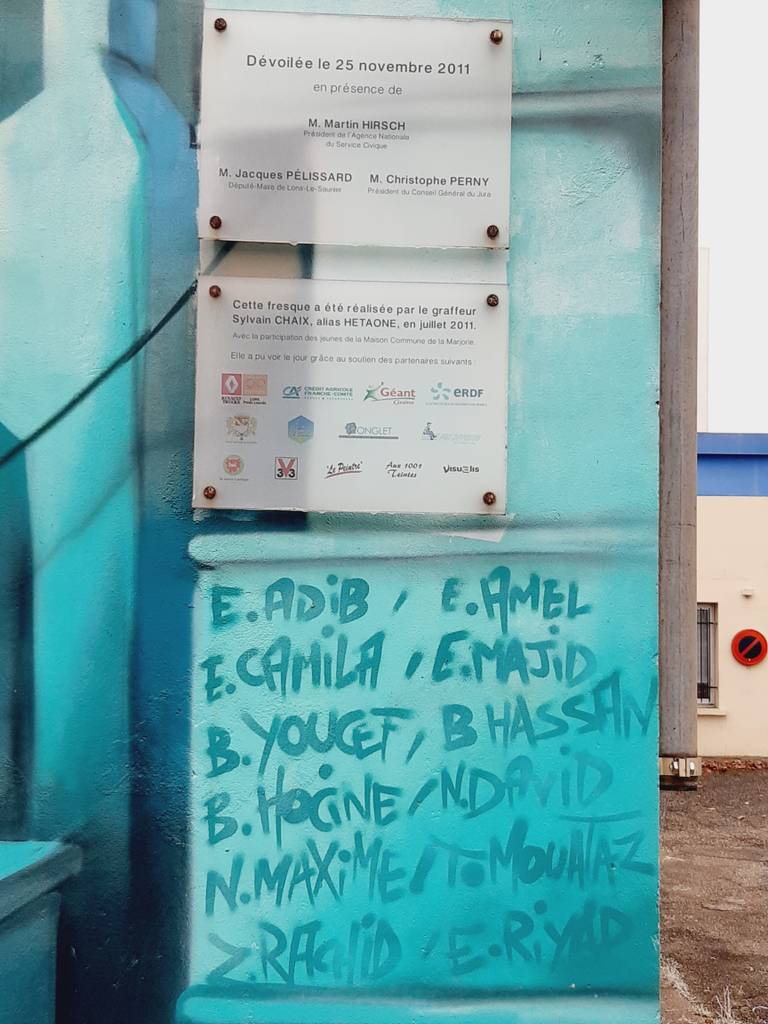 Dévoilée le 25 novembre 2011
en présence de
M. Martin HIRSCH
Président de l'Agence Nationale
du Service Civique
M. Jacques PÉLISSARD
Député-Maire de Lons-Le-Saunier
M. Christophe PERNY
Président du Conseil Général du Jura
Cette fresque a été réalisée par le graffeur
Sylvain CHAIX, alias HETAONE, en juillet 2011.
Avec la participation des jeunes de la Maison Commune de la Marjorie.
Elle a pu voir le jour grâce au soutien des partenaires suivants :
RENAULT TRUCKS
CA CRÉDIT AGRICOLE FRANCHE-COMTÉ
Géant Casino
eRDF
RONGLET
V33
'Le Peintre'
Aux 1001 Teintes
VISUELIS
E.ADIB / E.AMEL
E.CAMILA / E.MAJID
B.YOUCEF, B HASSAN
B.HOCINE / N.DAVID
N.MAXIME / T.MOUATAZ
Z.RACHID / E.RIYAD